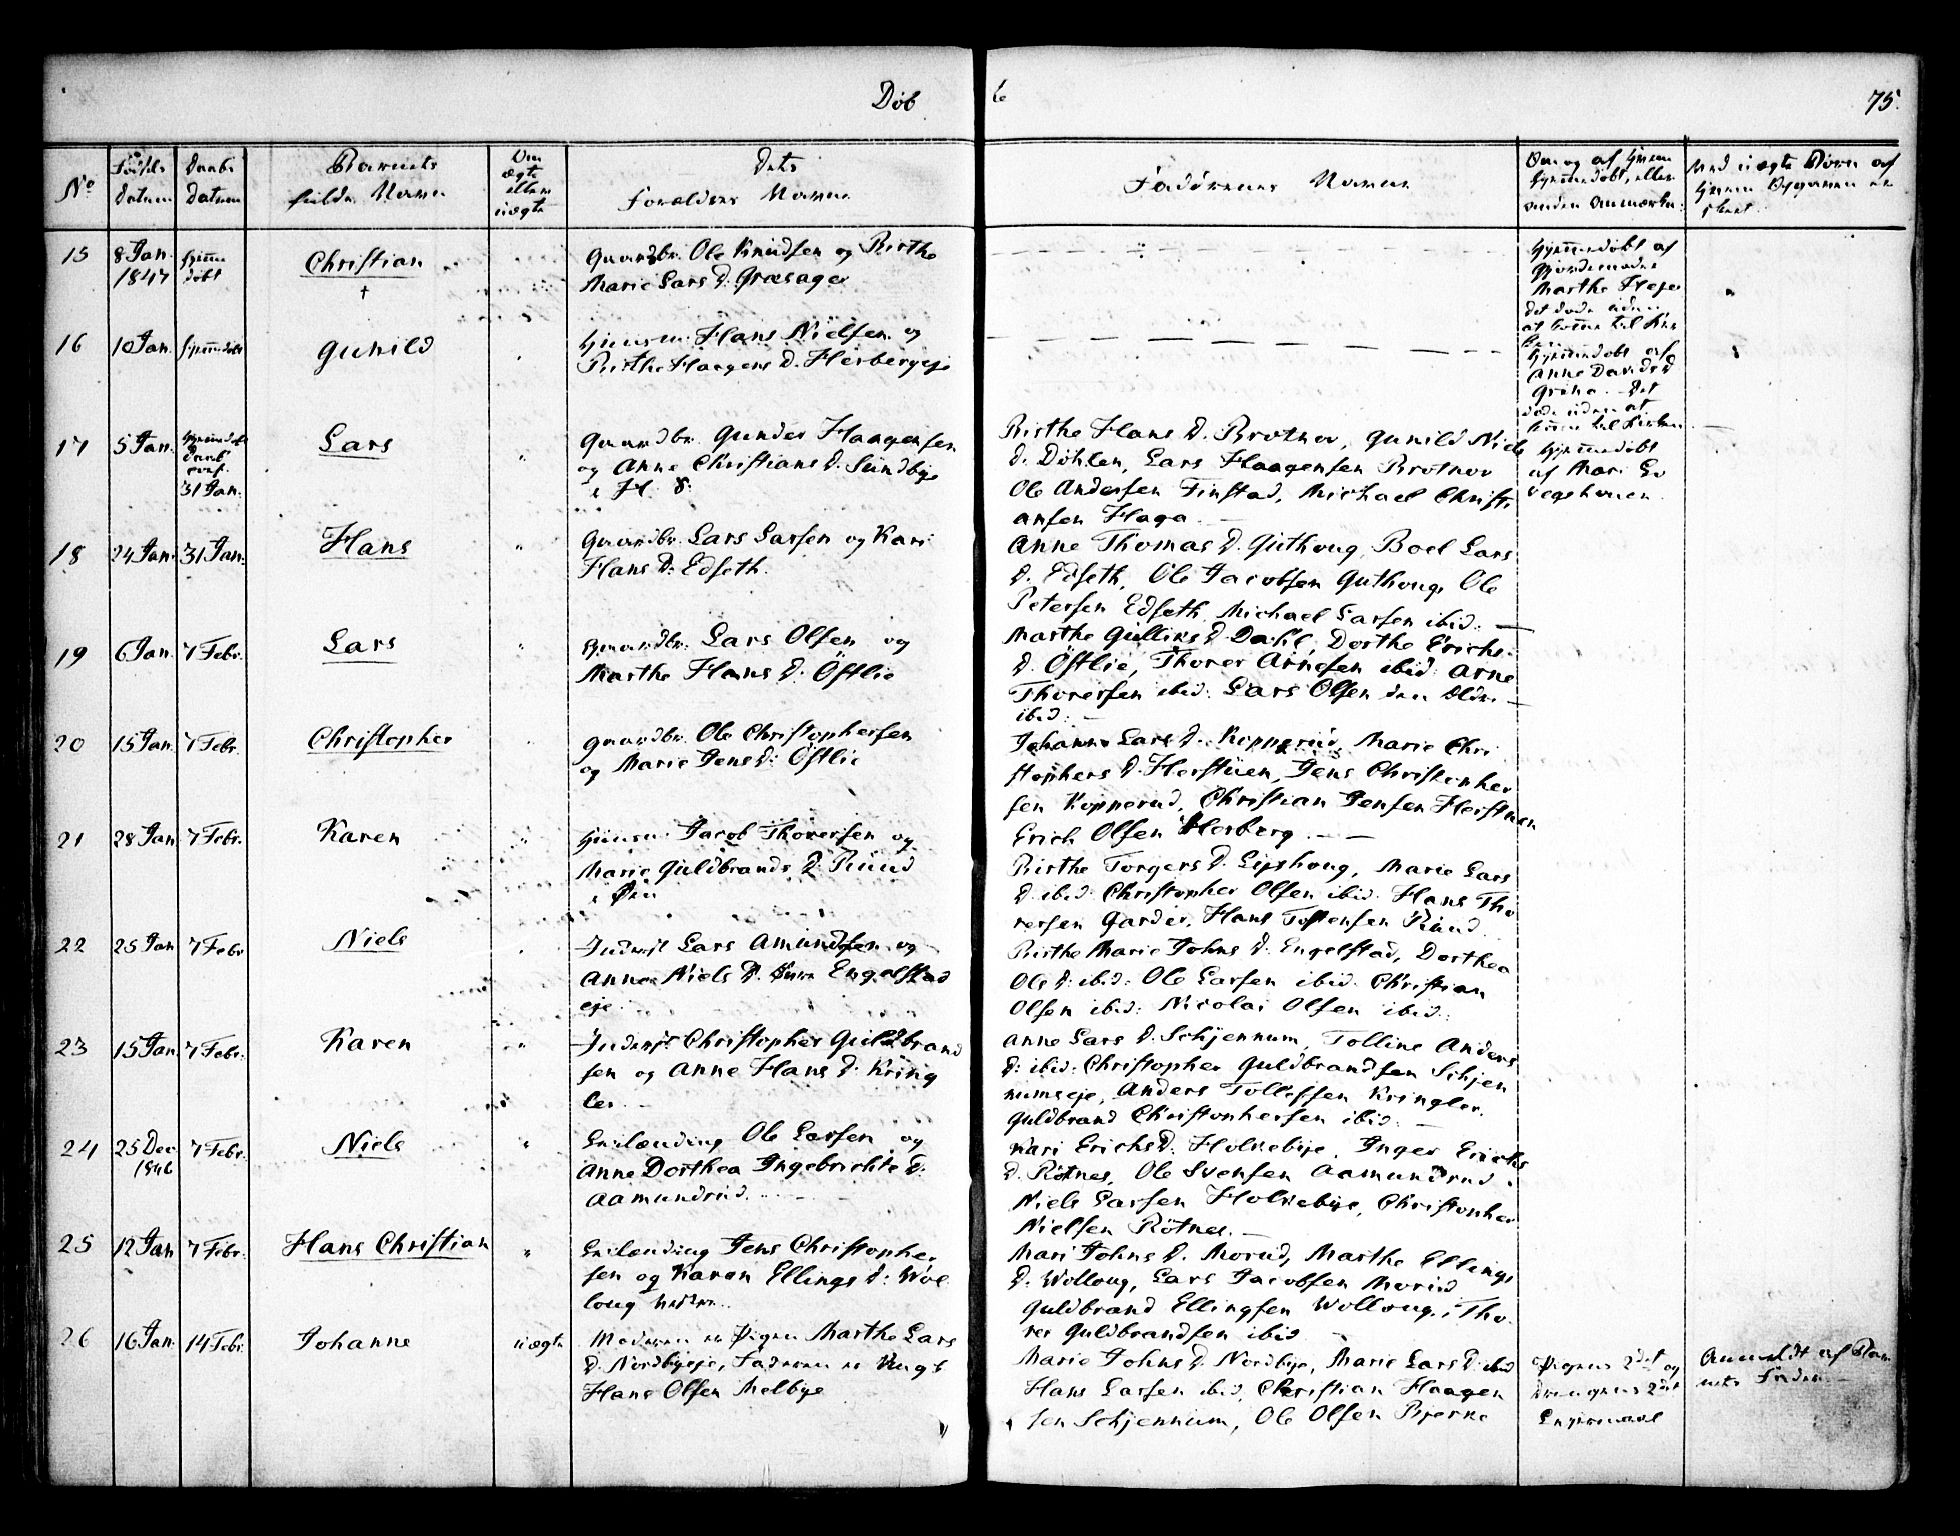 Döb
b
75.
No
Fødsels
datum
Daabs
datum
Barnets
fulde Navn
Om
ægte
eller
uægte
Dets
Forældres Navne
Faddernes Navne
Om og af hvem
hjemmedøbt, eller
anden Anmærkn:
Ved uægte Børn af
hvem Opgaven er
skeet.
15
8 Jan.
1847
hjemme
døbt
Christian
†
Gaardbr. Ole Knudsen og Birthe
Marie Lars D. Græsager
Hjemmedøbt af
Gjordemoder
Marthe
det døde uden
at komme til Kir
ken.
16
10 Jan.
hjemmedøbt
Gunild
Huusm. Hans Nielsen og
Birthe Haagens D. Herbergeje
Hjemmedøbt af
Anne Davids D
Det
døde uden at
komme til Kirken
17
5 Jan.
hjemmedøbt
Daab
31 Jan.
Lars
Gaardbr. Gunder Haagensen
og Anne Christians D. Sundbye
i H. S.
Birthe Hans D. Brotnov, Gunild Niels
D. Döhlen, Lars Haagensen Brotnov
Ole Andersen Finstad, Michael Christi
ansen Haga. —
Hjemmedøbt
af Mari
18
24 Jan.
31 Jan.
Hans
Gaardbr. Lars Larsen og Kari
Hans D. Edseth.
Anne Thomas D. Guthoug, Boel Lars
D. Edseth, Ole Jacobsen Guthoug, Ole
Petersen Edseth, Michael Larsen ibid: —
19
6 Jan.
7 Febr.
Lars
Gaardbr. Lars Olsen og
Marthe Hans D: Östlie
Marthe Gulliks D Dahl, Dorthe Erichs
D. Östlie, Thorer Arnesen ibid: Arne
Thorersen ibid: Lars Olsen den Ældre —
ibid: —
20
15 Jan.
7 Febr.
Christopher
Gaardbr. Ole Christophersen
og Marie Jens D: Östlie
Johanne Lars D. Kopperud, Marie Chri
stophers D. Herstuen, Jens Christopher
sen Kopperud, Christian Jensen Herstuen
Erich Olsen Herberg. — —
21
28 Jan
7 Febr.
Karen
Huusm. Jacob Thorersen og
Marie Guldbrands D: Ruud
i Öier
Birthe Torgers D. Lipshoug, Marie Lars
D. ibid: Christopher Olsen ibid: Hans Tho
rersen Garder, Hans Tostensen Ruud.
22
25 Jan
7 Febr
Niels
Inderst Lars Amundsen og
Anne Niels D. Engelstad
eje.
Birthe Marie Johns D. Engelstad, Dorthea
Ols D: ibid: Ole Larsen ibid. Christian
Olsen ibid: Nicolai Olsen ibid:
23
15 Jan.
7 Febr.
Karen
Inderst Christopher Guldbrand
sen og Anne Hans D: Kring
ler. —
Anne Lars D. Schjennum, Tolline Anders
D: ibid: Christopher Guldbrandsen Schjen
numseje, Anders Tollefsen Kringler.
Guldbrand Christophersen ibid: —
24
25 Dec
1846
7 Febr.
Niels
Ole Larsen og
Anne Dorthea Ingebrichts D:
Aamundrud.
Kari Erichs D: Holkebye, Inger Erichs
D. Rötnes, Ole Svensen Aamundrud.
Niels Larsen Holkebye, Christopher
Nielsen Rötnes. —
25
12 Jan
7 Febr.
Hans Christian
Jens Christopher
sen og Karen Ellings D: Wol
loug nedre.
Mari Johns D. Morud, Marthe Ellings
D. Wolloug, Lars Jacobsen Morud
Guldbrand Ellingsen Wolloug, Tho
rer Guldbrandsen ibid —
26
16 Jan.
14 Febr.
Johanne
uægte
Moderen er Pigen Marthe Lars
D. Nordbyeje, Faderen er Ungk
Hans Olsen Melbye
Marie Johns D. Nordbye, Marie Lars D. ibid
Hans Larsen ibid, Christian Haagen
sen Schjennum, Ole Olsen Bjerke
Pigens 2det og
2det
Lejermaal
Anmeldt af Bar
nets Fader. —